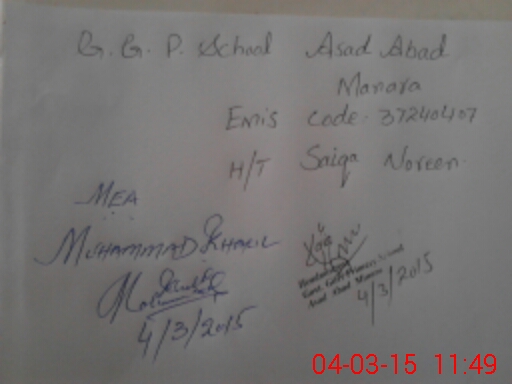 G. G. P. School Asad Abad
Manara
Emis Code. 37240407
H/T Saiqa Noreen.
MEA
MUHAMMAD KHALIL
4/3/2015
Govt. Girls Primary School
Asad Abad
4/3/2015
04-03-15 11:49